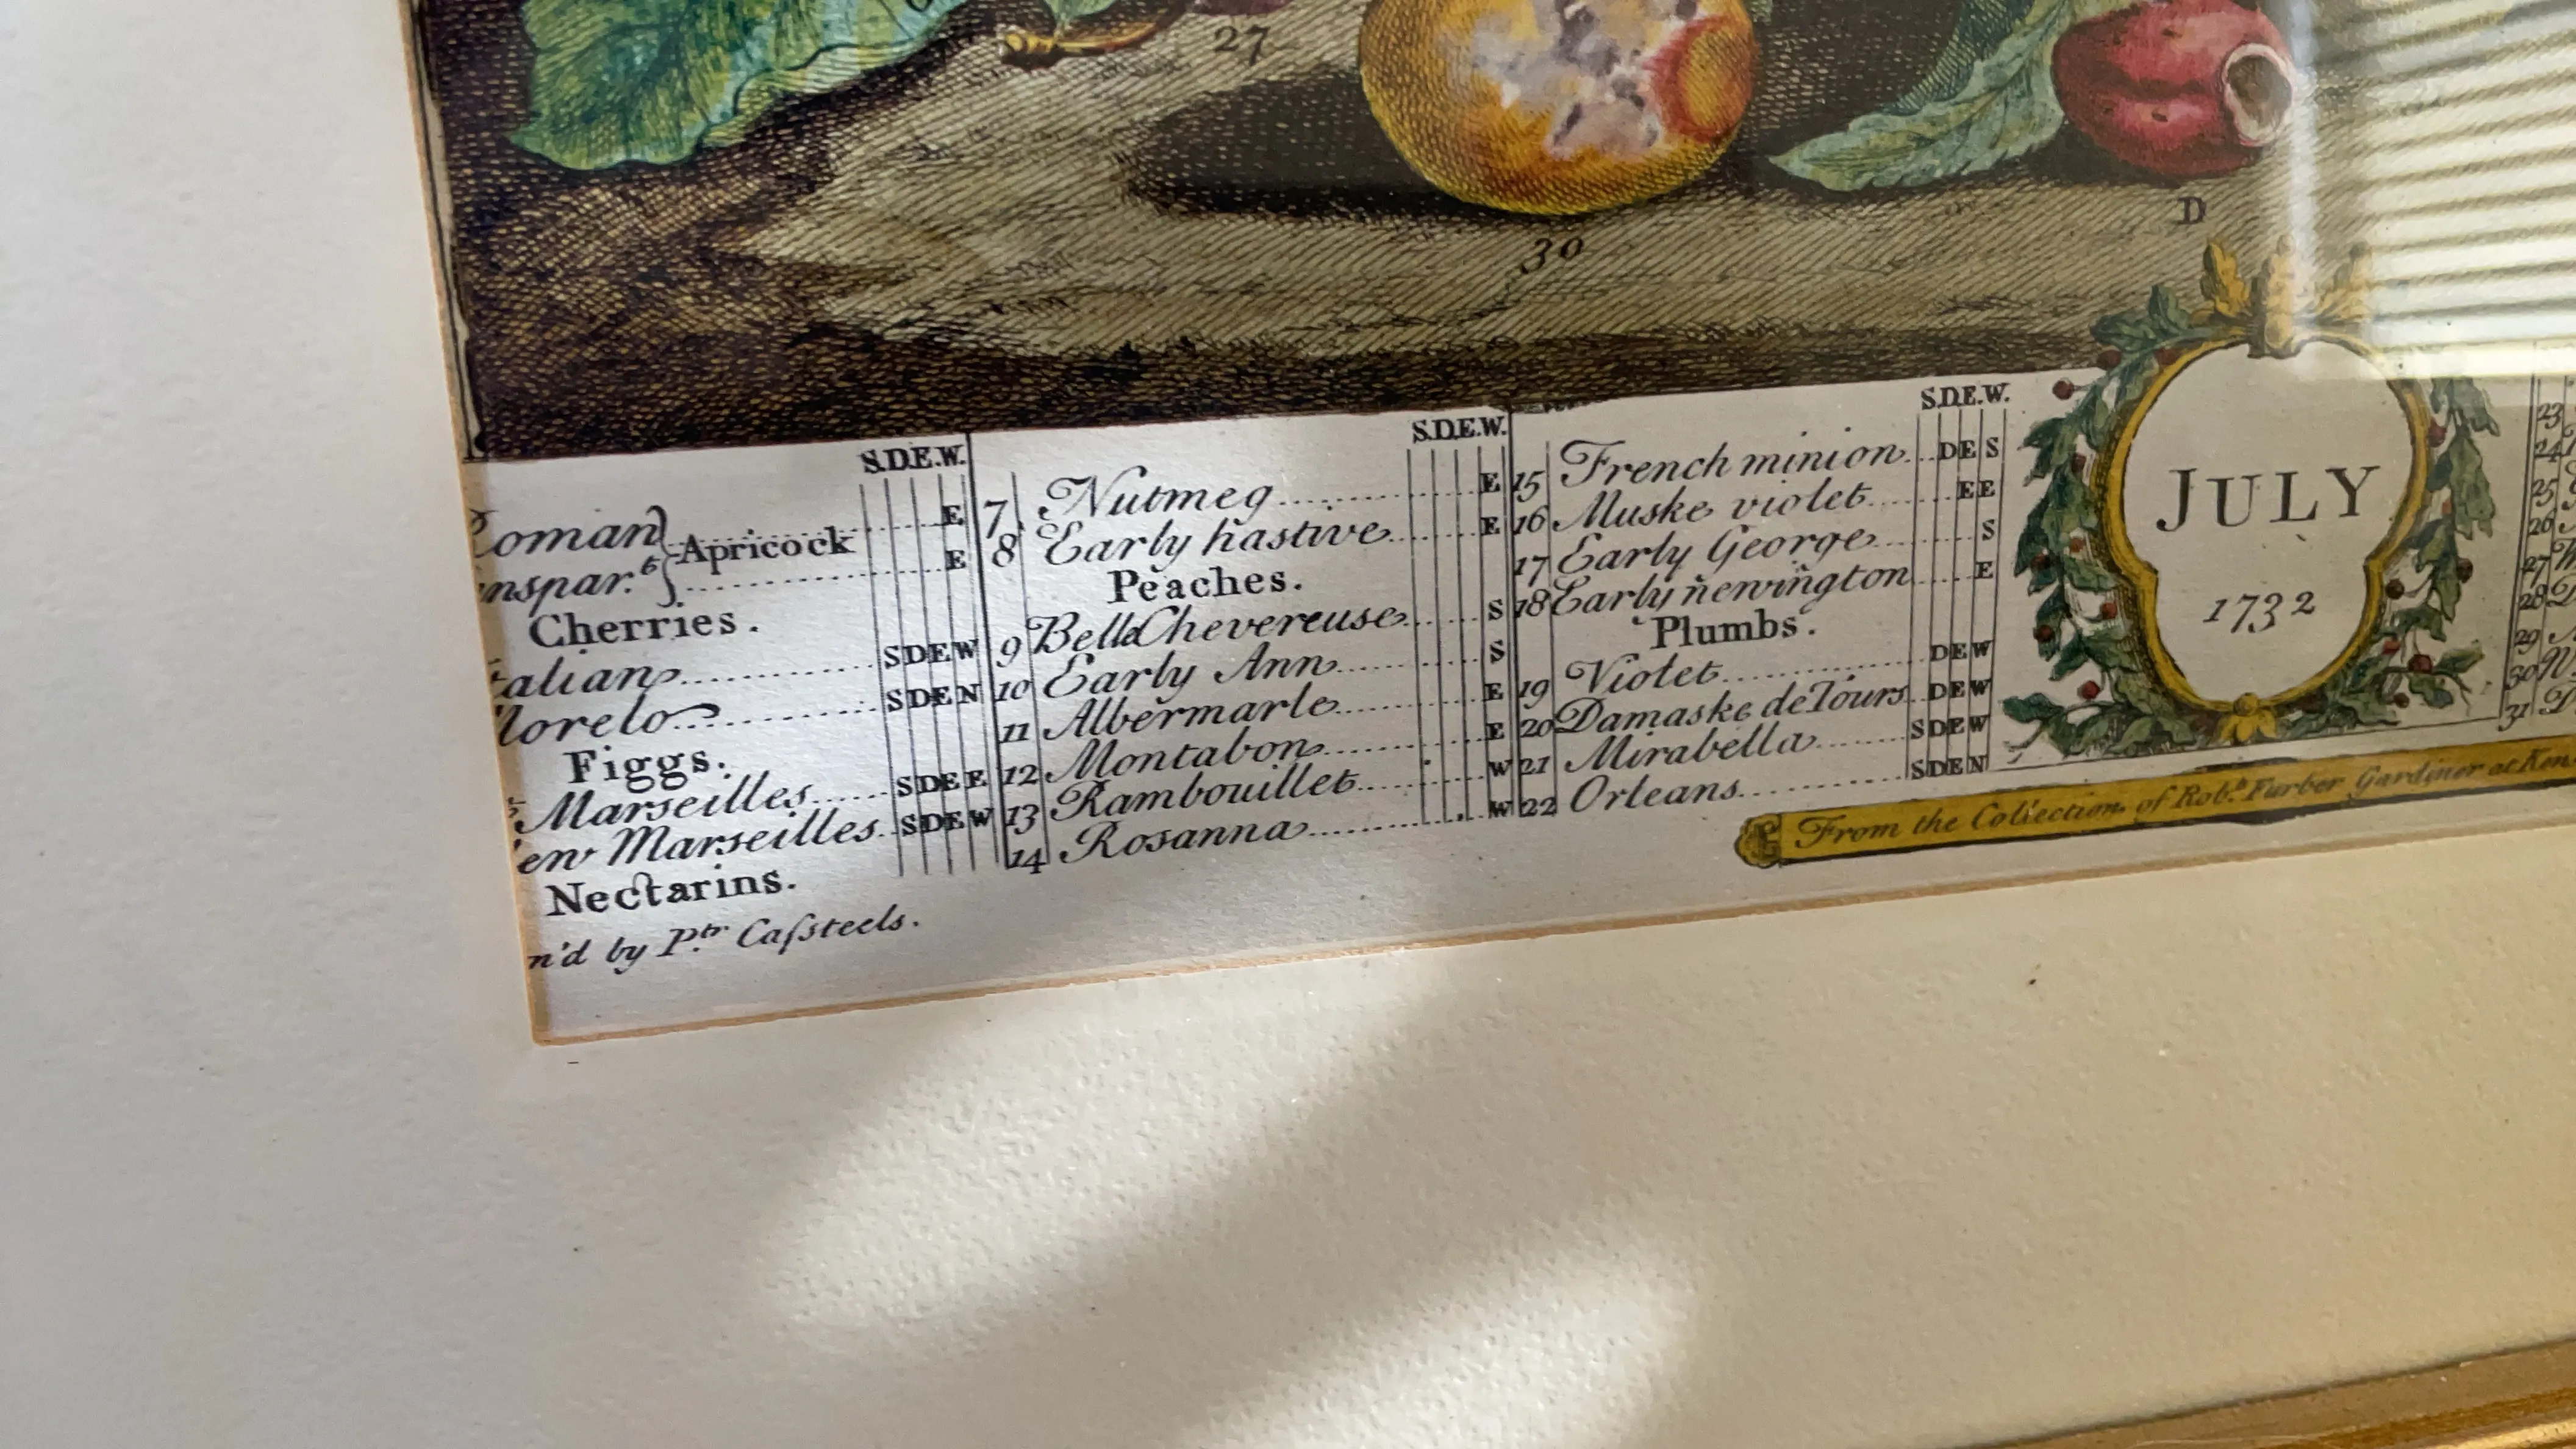 27
30
D
S.D.E.W.
Roman
Apricock E
nspar.t E
Cherries.
alian SDEW
Morelo SDEN
Figgs.
Marseilles SDEE
en Marseilles SDEW
Nectarins.
n'd by P.tr Caſsteels.
S.D.E.W.
7 Nutmeg E
8 Early hastive E
Peaches.
9 Bella Chevereuse S
10 Early Ann S
11 Albermarle E
12 Montabon E
13 Rambouillet W
14 Rosanna W
S.D.E.W.
15 French minion DES
16 Muske violet EE
17 Early George S
18 Early newington E
Plumbs.
19 Violet DEW
20 Damaske de Tours DEW
21 Mirabella SDEW
22 Orleans SDEN
JULY
1732
23
24
25
26
27
28
29
30
31
From the Collection of Rob.t Furber Gardiner at Ken